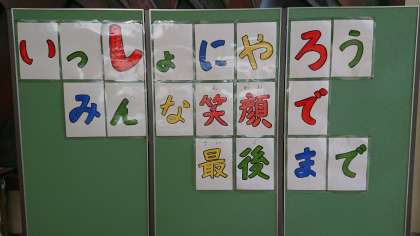 いっしょにやろう
みんな笑顔で
最後まで